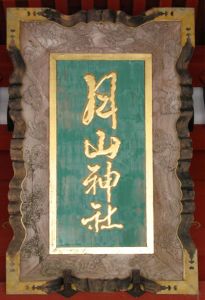 月山神社